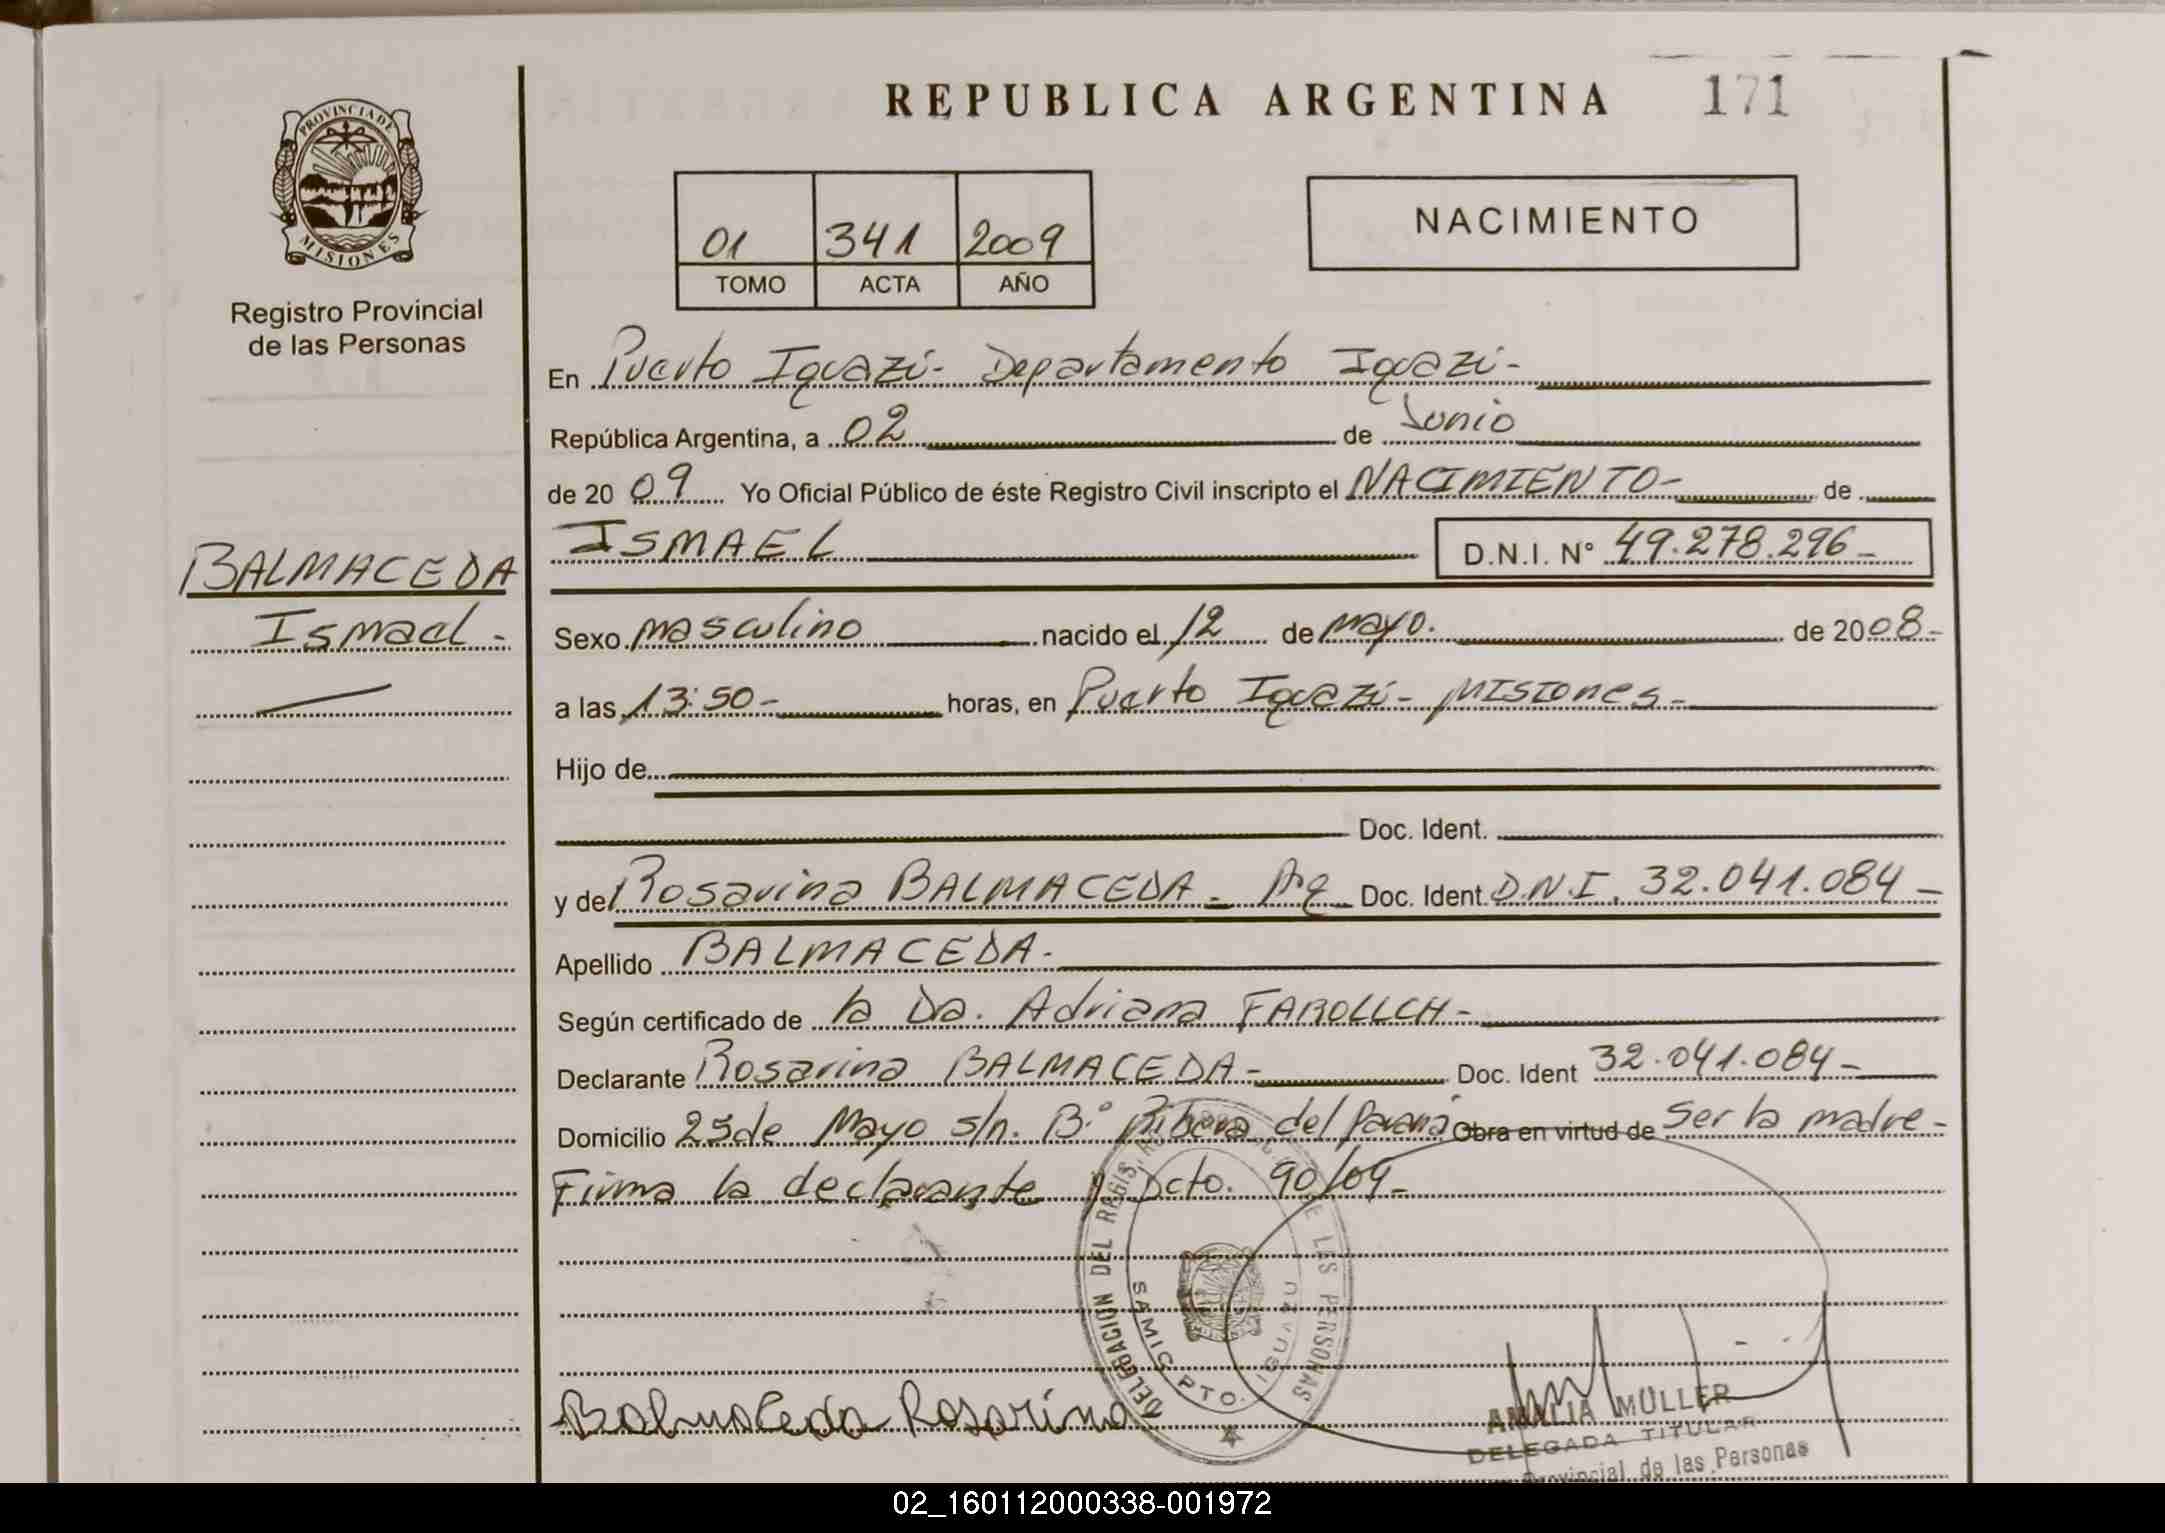 REPUBLICA ARGENTINA 171
PROVINCIA DE
MISIONES
Registro Provincial
de las Personas
01 341 2009
TOMO ACTA AÑO
NACIMIENTO
En Puerto Iguazú - Departamento Iguazú -
República Argentina, a 02 de Junio
de 2009 Yo Oficial Público de éste Registro Civil inscripto el NACIMIENTO - de
ISMAEL D.N.I. N° 49.278.296 -
BALMACEDA
Ismael -
Sexo masculino nacido el 12 de mayo. de 2008 -
a las 13:50 - horas, en Puerto Iguazú - Misiones -
Hijo de
Doc. Ident.
y de Rosarina BALMACEDA - Arg Doc. Ident. D.N.I. 32.041.084 -
Apellido BALMACEDA -
Según certificado de la Dra. Adriana -
Declarante Rosarina BALMACEDA - Doc. Ident 32.041.084 -
Domicilio 25 de Mayo s/n. B° Ribera del Paraná Obra en virtud de Ser la madre -
Firma la declarante Dcto. 90/09 -
DELEGACION DEL REGISTRO DE LAS PERSONAS
SAMIC PTO. IGUAZU
Balmaceda Rosarina
AMALIA MULLER
DELEGADA TITULAR
Provincial de las Personas
02_160112000338-001972